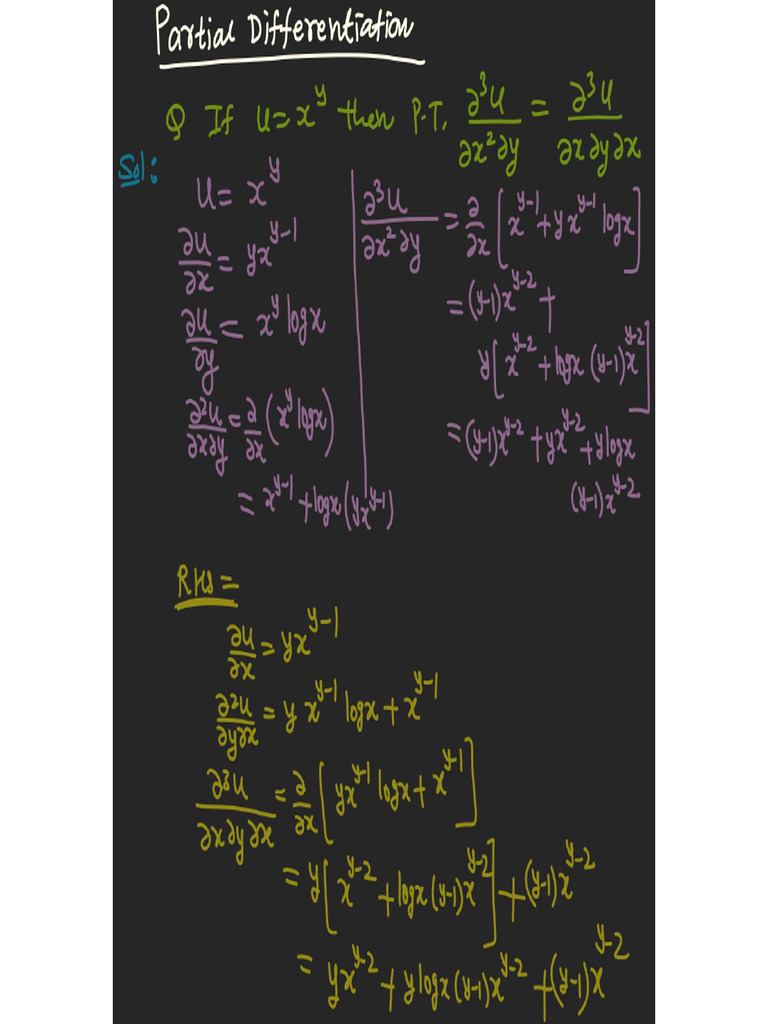 Partial Differentiation
Q If u=x^y then P.T. ∂³u/∂x²∂y = ∂³u/∂x∂y∂x
Sol:
u= x^y
∂u/∂x = yx^(y-1)
∂u/∂y = x^y logx
∂²u/∂x∂y = ∂/∂x (x^y logx)
= x^(y-1) + logx (yx^(y-1))
∂³u/∂x²∂y = ∂/∂x [x^(y-1) + y x^(y-1) logx]
= (y-1)x^(y-2) +
y[x^(y-2) + logx (y-1)x^(y-2)]
= (y-1)x^(y-2) + yx^(y-2) + ylogx
(y-1)x^(y-2)
RHS =
∂u/∂x = yx^(y-1)
∂²u/∂y∂x = y x^(y-1) logx + x^(y-1)
∂³u/∂x∂y∂x = ∂/∂x [yx^(y-1) logx + x^(y-1)]
= y[x^(y-2) + logx (y-1)x^(y-2)] + (y-1)x^(y-2)
= yx^(y-2) + ylogx (y-1)x^(y-2) + (y-1)x^(y-2)